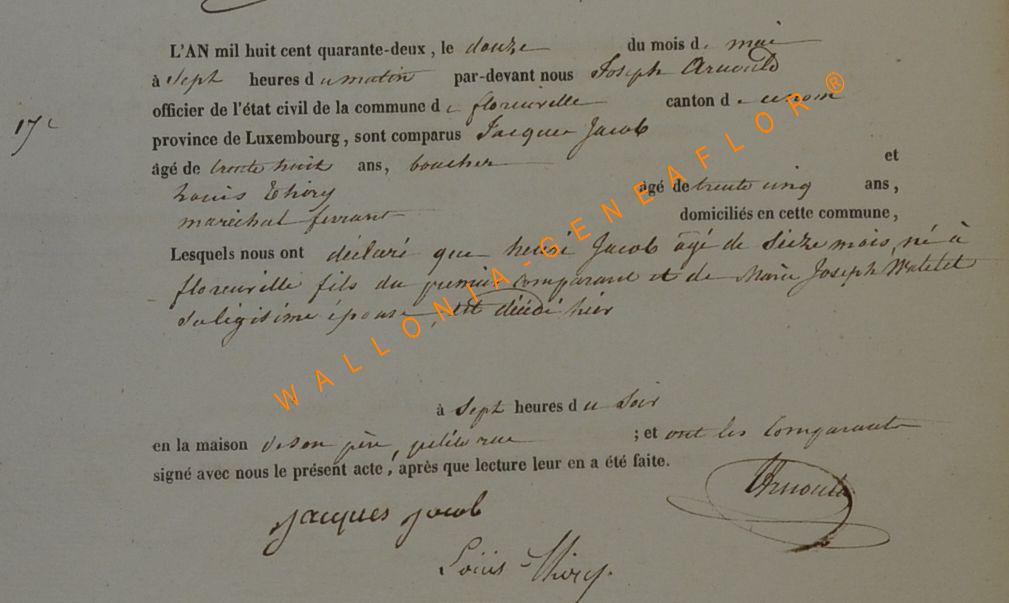 L'AN mil huit cent quarante-deux, le douze du mois de mai
à sept heures du matin par-devant nous Joseph Arnould
officier de l'état civil de la commune de florenville canton d
17e
province de Luxembourg, sont comparus Jacques Jacob
âgé de trente huit ans, boucher et
Louis Thiry âgé de trente cinq ans,
maréchal ferrant domiciliés en cette commune,
Lesquels nous ont déclaré que henri Jacob âgé de Seize mois, né à
florenville fils du premier comparant et de Marie Joseph Watelet
sa légitime épouse, est décédé hier
WALLONIA-GENEAFLOR ®
à Sept heures du Soir
en la maison de son père, petite rue ; et ont les Comparants
signé avec nous le présent acte, après que lecture leur en a été faite.
Arnould
Jacques Jacob
Louis Thiry.